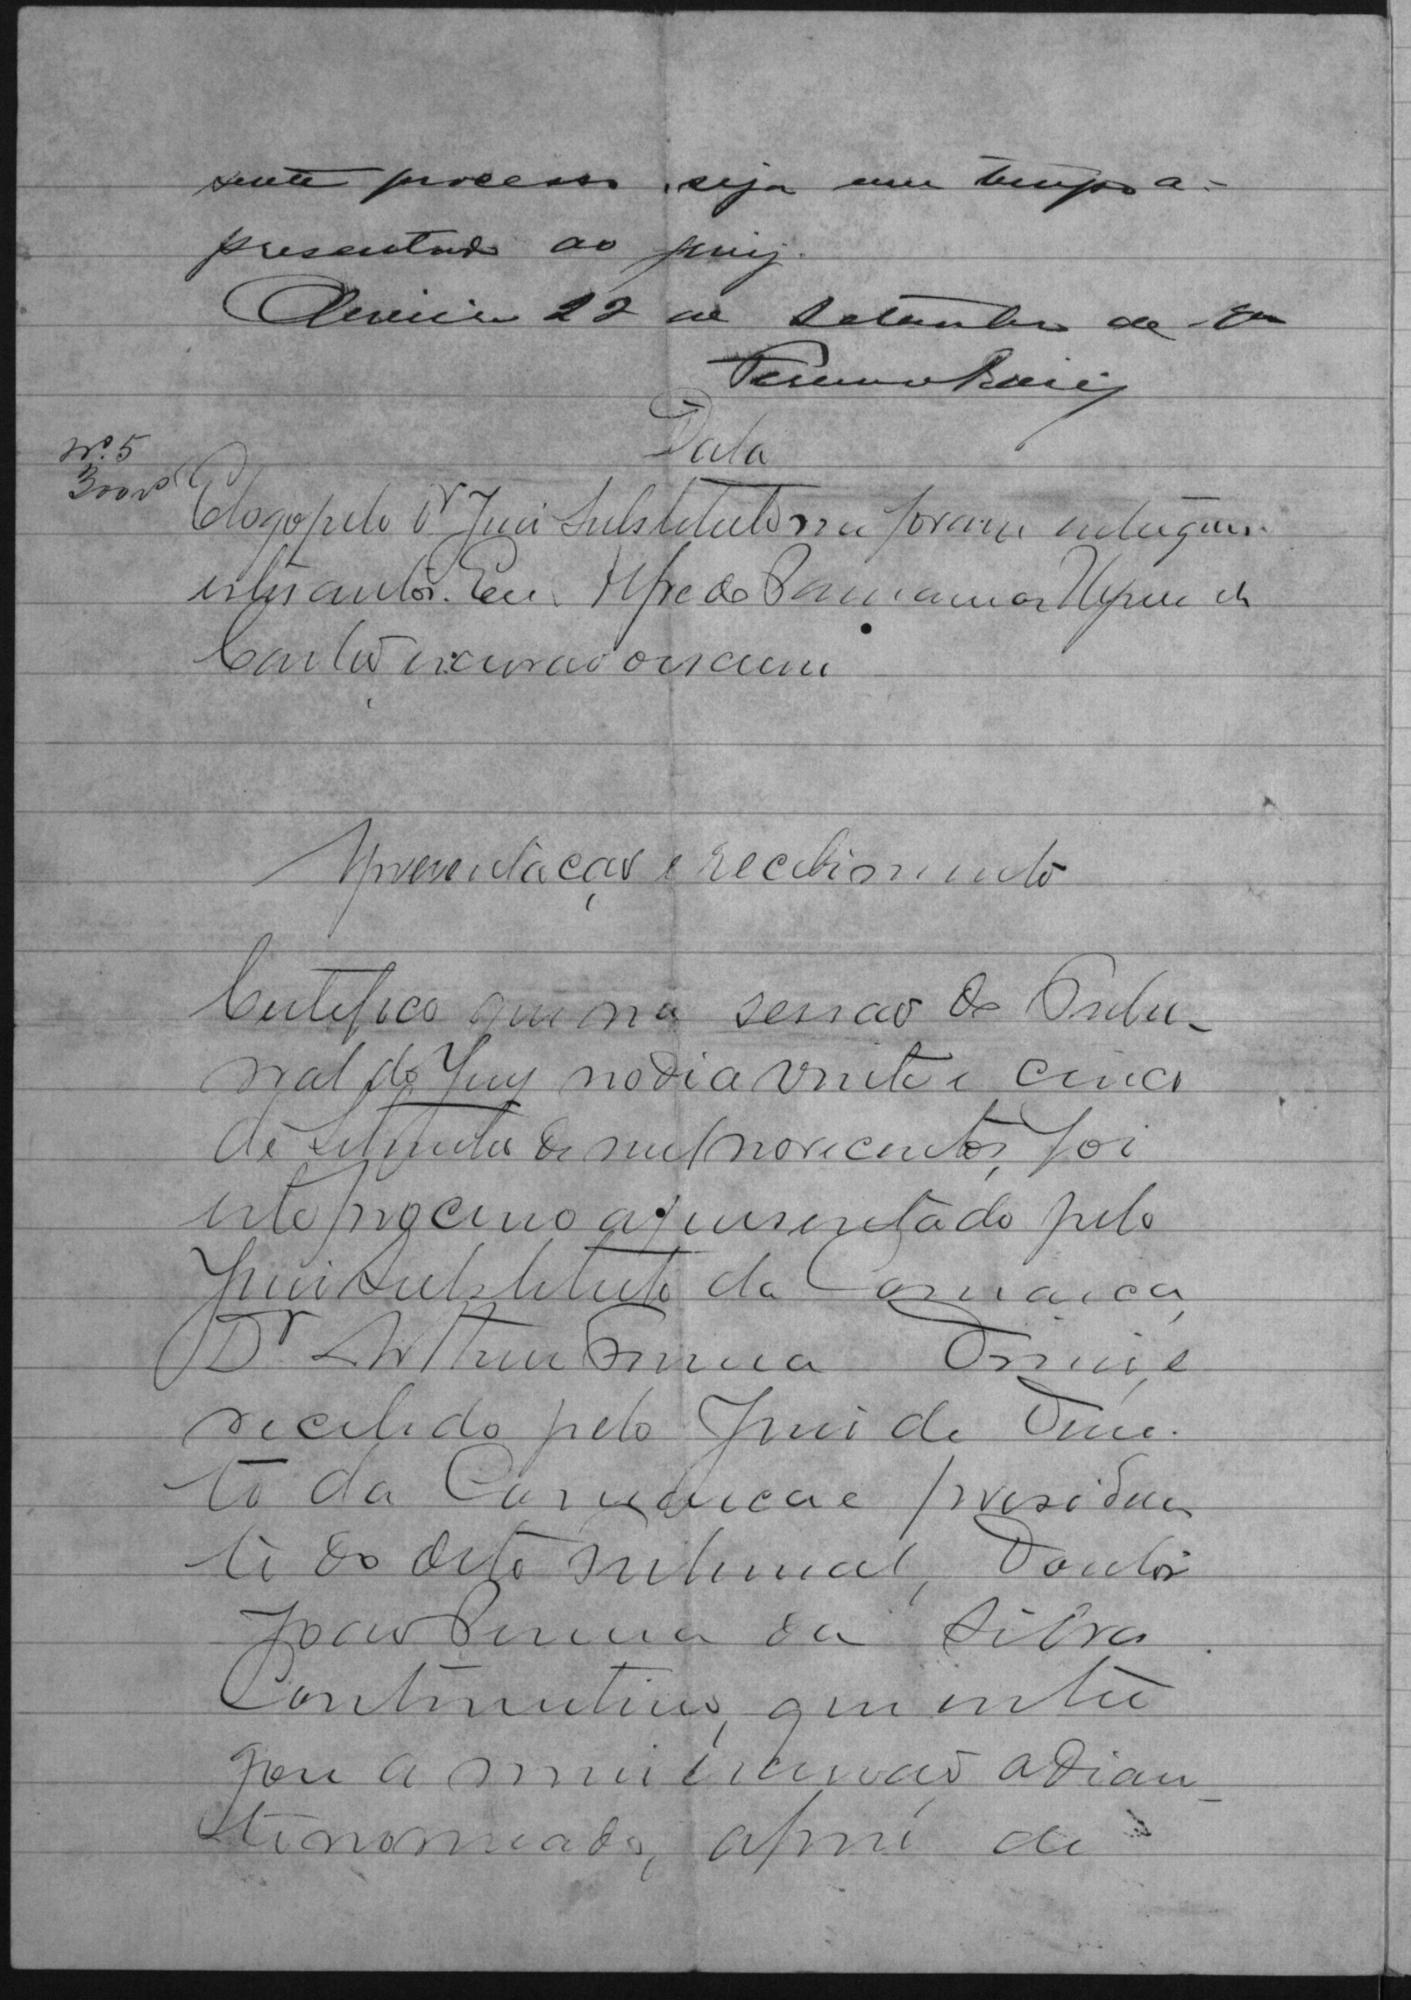 sente processo, seja em tempo a-
presentado ao juiz.
22 de Setembro de
Data
Nº 5
E logo pelo Dr Juiz Substituto me foram entregues
estes autos. Eu, Alfredo de
Couto escrivão o escrevi
Apresentação e recebimento
Certifico que na sessão do Tribu-
nal do Jury no dia vinte e cinco
de Setembro de mil novecentos, foi
este processo apresentado pelo
Juiz Substituto da Comarca,
Dr Arthur e
recebido pelo Juiz de Direi-
to da Comarca e presiden
te do dito Tribunal, Doutor
João Pereira da Silva
Continentino, que entre
gou a mim escrivão adian-
te nomeado, afim de